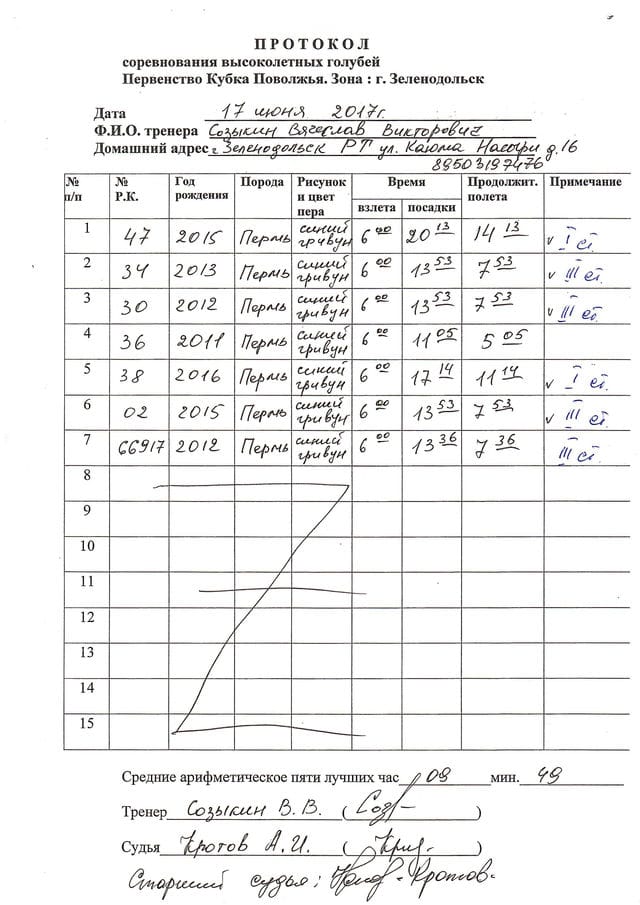 ПРОТОКОЛ
соревнования высоколетных голубей
Первенство Кубка Поволжья. Зона : г. Зеленодольск
Дата 17 июня 2017г.
Ф.И.О. тренера Созыкин Вячеслав Викторович
Домашний адрес г Зеленодольск РТ ул. Каюма Насыри д.16
89503197476
№ п/п № Р.К. Год рождения Порода Рисунок и цвет пера Время взлета посадки Продолжит. полета Примечание
1 47 2015 Пермь синий гривун 6 00 20 13 14 13 v I ст.
2 34 2013 Пермь синий гривун 6 00 13 53 7 53 v III ст.
3 30 2012 Пермь синий гривун 6 00 13 53 7 53 v III ст.
4 36 2011 Пермь синий гривун 6 00 11 05 5 05
5 38 2016 Пермь синий гривун 6 00 17 14 11 14 v I ст.
6 02 2015 Пермь синий гривун 6 00 13 53 7 53 v III ст.
7 66917 2012 Пермь синий гривун 6 00 13 36 7 36 III ст.
8
9
10
11
12
13
14
15
Средние арифметическое пяти лучших час 09 мин. 49
Тренер Созыкин В. В. ( )
Судья Кротов А. И. ( )
Старший судья: Кротов